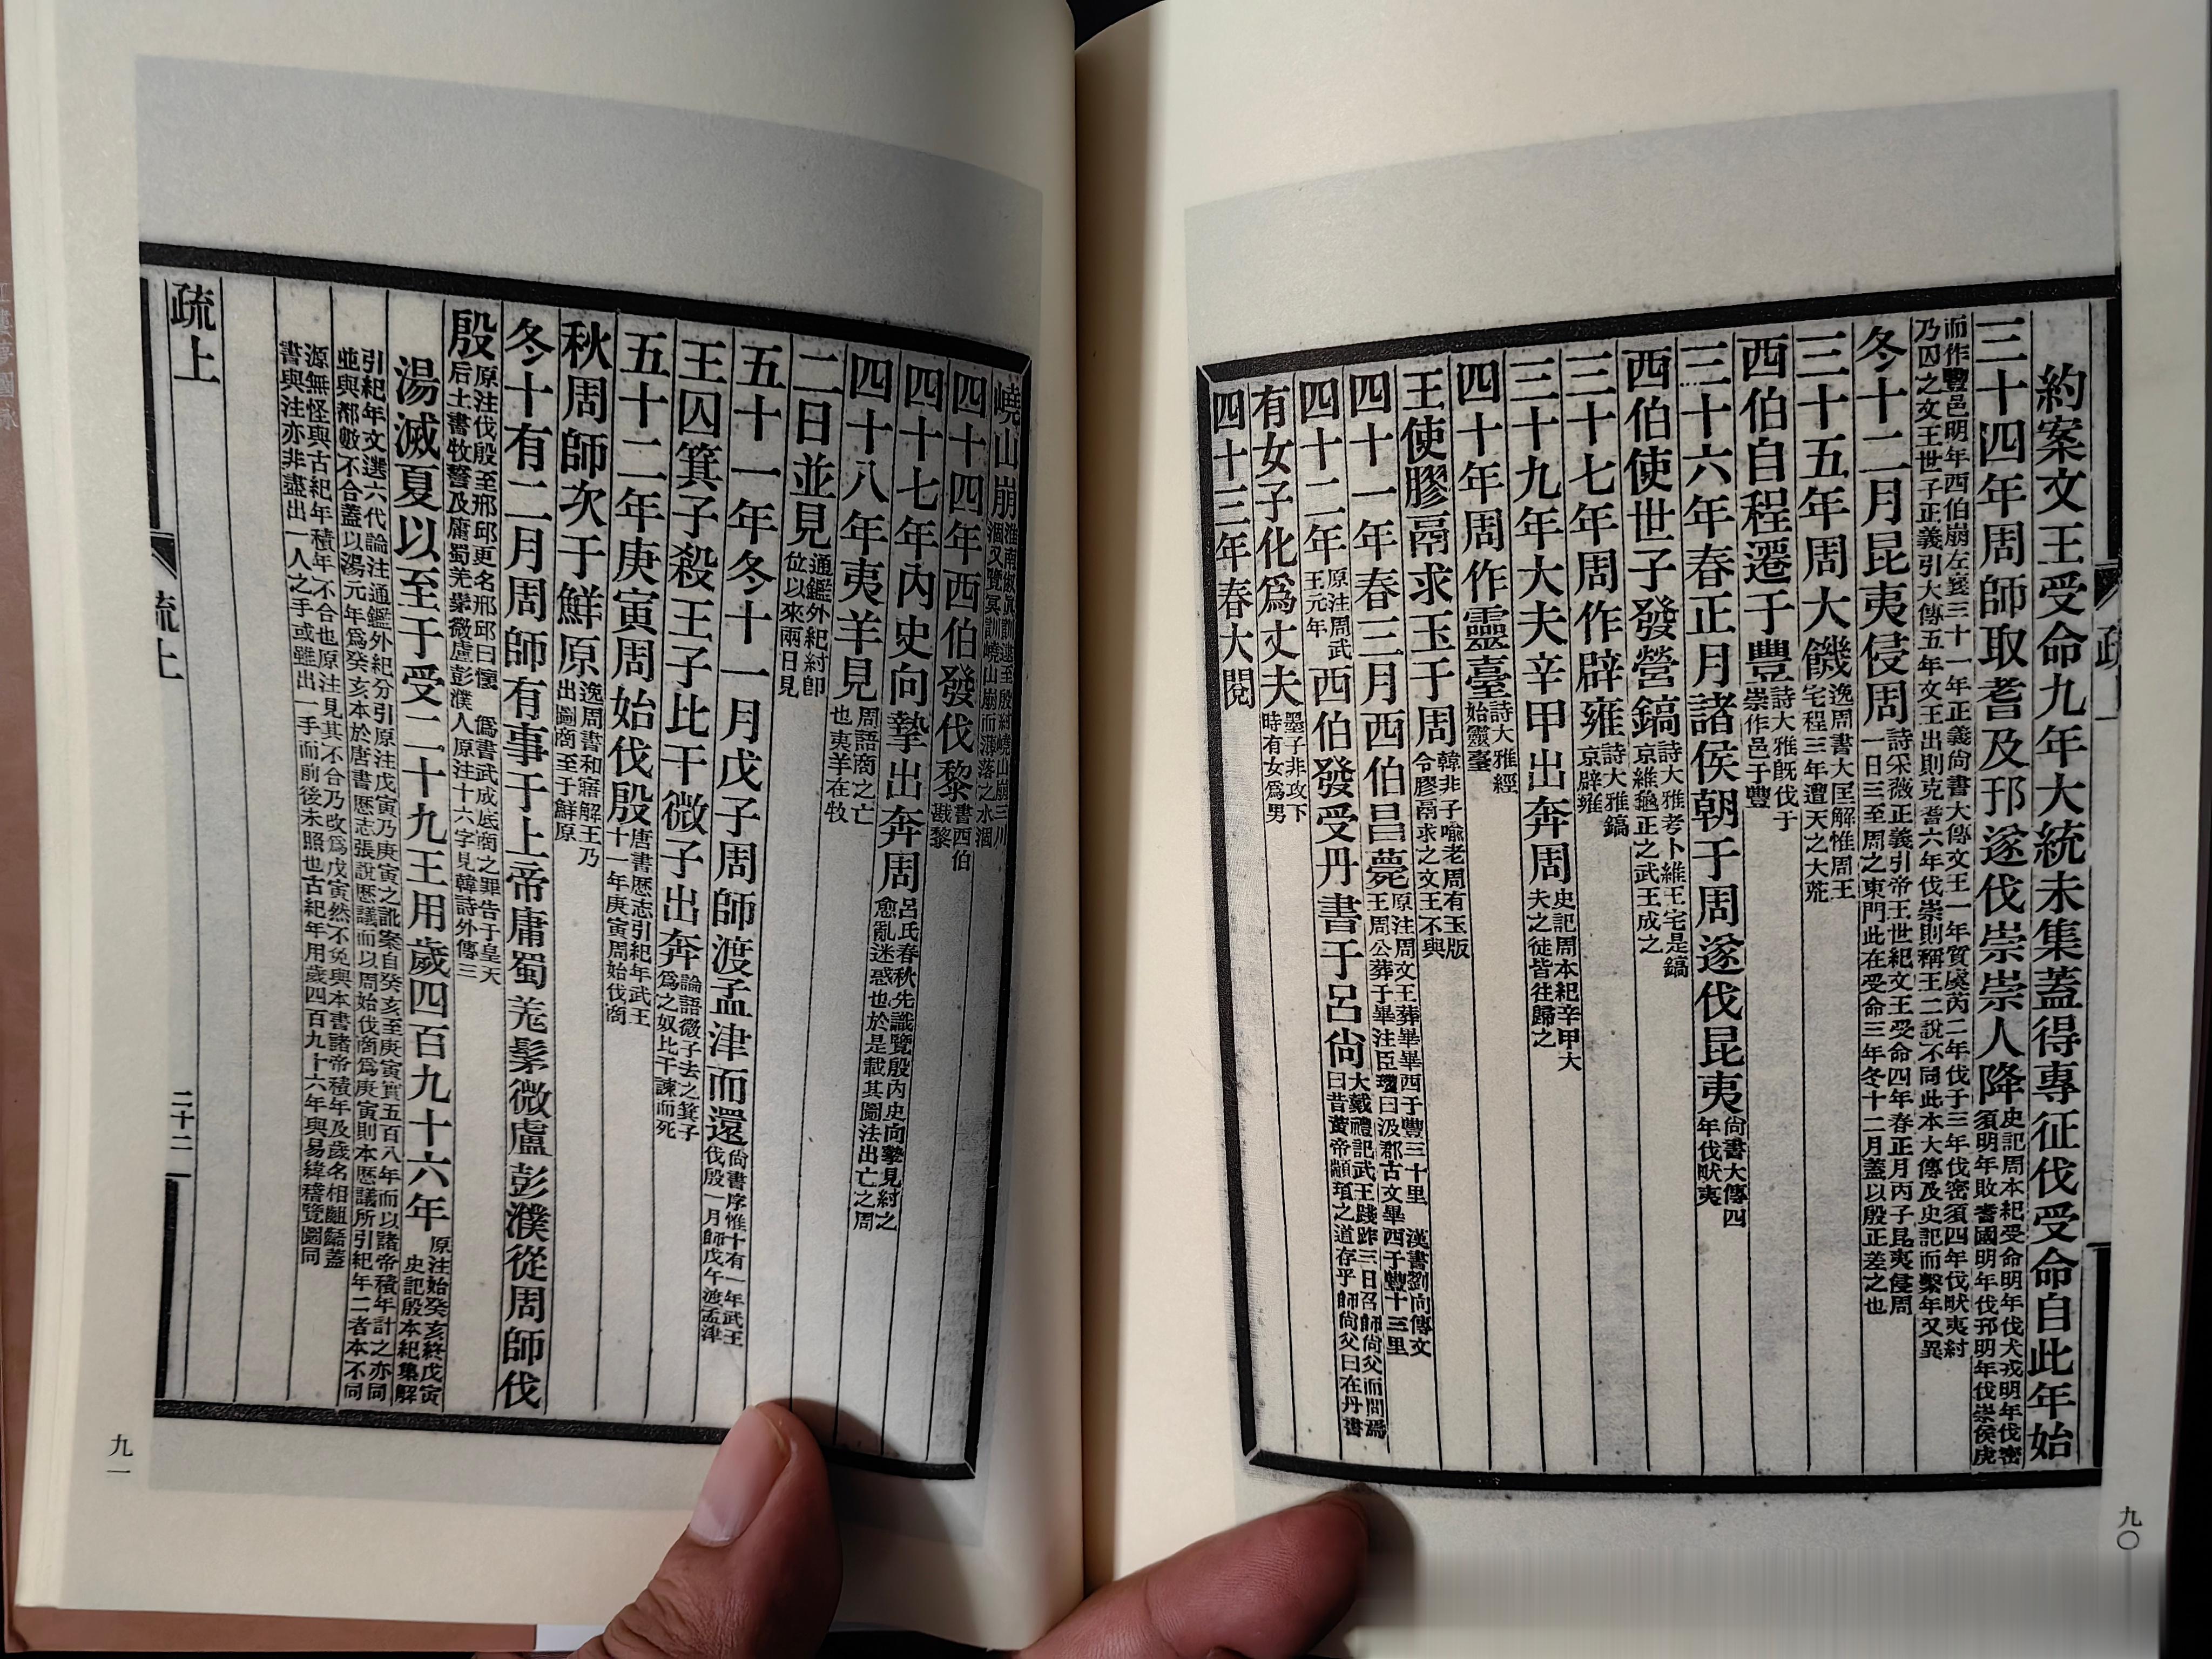 約案文王受命九年大統未集蓋得專征伐受命自此年始
三十四年周師取耆及邘遂伐崇崇人降史記周本紀受命明年伐犬戎明年伐密
須明年敗耆國明年伐邘明年伐崇侯虎
而作豐邑明年西伯崩左襄三十一年正義尚書大傳文王一年質虞芮二年伐于三年伐密須四年伐畎夷紂
乃囚之文王世子正義引大傳五年文王出則克耆六年伐崇則稱王二說不同此本大傳及史記而繫年又異
冬十二月昆夷侵周詩采薇正義引帝王世紀文王受命四年春正月丙子昆夷侵周
一日三至周之東門此在受命三年冬十二月蓋以殷正差之也
三十五年周大饑逸周書大匡解惟周王
宅程三年遭天之大荒
西伯自程遷于豐詩大雅旣伐于
崇作邑于豐
三十六年春正月諸侯朝于周遂伐昆夷尚書大傳四
年伐畎夷
西伯使世子發營鎬詩大雅考卜維王宅是鎬
京維龜正之武王成之
三十七年周作辟雍詩大雅鎬
京辟雍
三十九年大夫辛甲出奔周史記周本紀辛甲大
夫之徒皆往歸之
四十年周作靈臺詩大雅經
始靈臺
王使膠鬲求玉于周韓非子喩老周有玉版
令膠鬲求之文王不與
四十一年春三月西伯昌薨原注周文王葬畢畢西于豐三十里 漢書劉向傳文
王周公葬于畢注臣瓚曰汲郡古文畢西于豐十三里
四十二年原注周武
王元年西伯發受丹書于呂尙大戴禮記武王踐阼三日召師尙父而問焉
曰昔黃帝顓頊之道存乎師尙父曰在丹書
有女子化爲丈夫墨子非攻下
時有女爲男
四十三年春大閱
疏上
九〇
嶢山崩淮南俶眞訓逮至殷紂嶢山崩三川
涸又覽冥訓嶢山崩而薄落之水涸
四十四年西伯發伐黎書西伯
戡黎
四十七年內史向摯出奔周呂氏春秋先識覽殷內史向摯見紂之
愈亂迷惑也於是載其圖法出亡之周
四十八年夷羊見周語商之亡
也夷羊在牧
二日並見通鑑外紀紂卽
位以來兩日見
五十一年冬十一月戊子周師渡孟津而還尙書序惟十有一年武王
伐殷一月師戊午渡孟津
王囚箕子殺王子比干微子出奔論語微子去之箕子
爲之奴比干諫而死
五十二年庚寅周始伐殷唐書歷志引紀年武王
十一年庚寅周始伐商
秋周師次于鮮原逸周書和寤解王乃
出圖商至于鮮原
冬十有二月周師有事于上帝庸蜀羌髳微盧彭濮從周師伐
殷原注伐殷至邢邱更名邢邱曰懷 僞書武成底商之罪告于皇天
后土書牧誓及庸蜀羌髳微盧彭濮人原注十六字見韓詩外傳三
湯滅夏以至于受二十九王用歲四百九十六年原注始癸亥終戊寅
史記殷本紀集解
引紀年文選六代論注通鑑外紀分引原注戊寅乃庚寅之訛案自癸亥至庚寅實五百八年而以諸帝積年計之亦同
並與都數不合蓋以湯元年爲癸亥本於唐書歷志張說歷議而以周始伐商爲庚寅則本歷議所引紀年二者本不同
源無怪與古紀年積年不合也原注見其不合乃改爲戊寅然不免與本書諸帝積年及歲名相齟齬蓋
書與注亦非盡出一人之手或雖出一手而前後未照也古紀年用歲四百九十六年與易緯稽覽圖同
疏上
疏上
二十二
九一